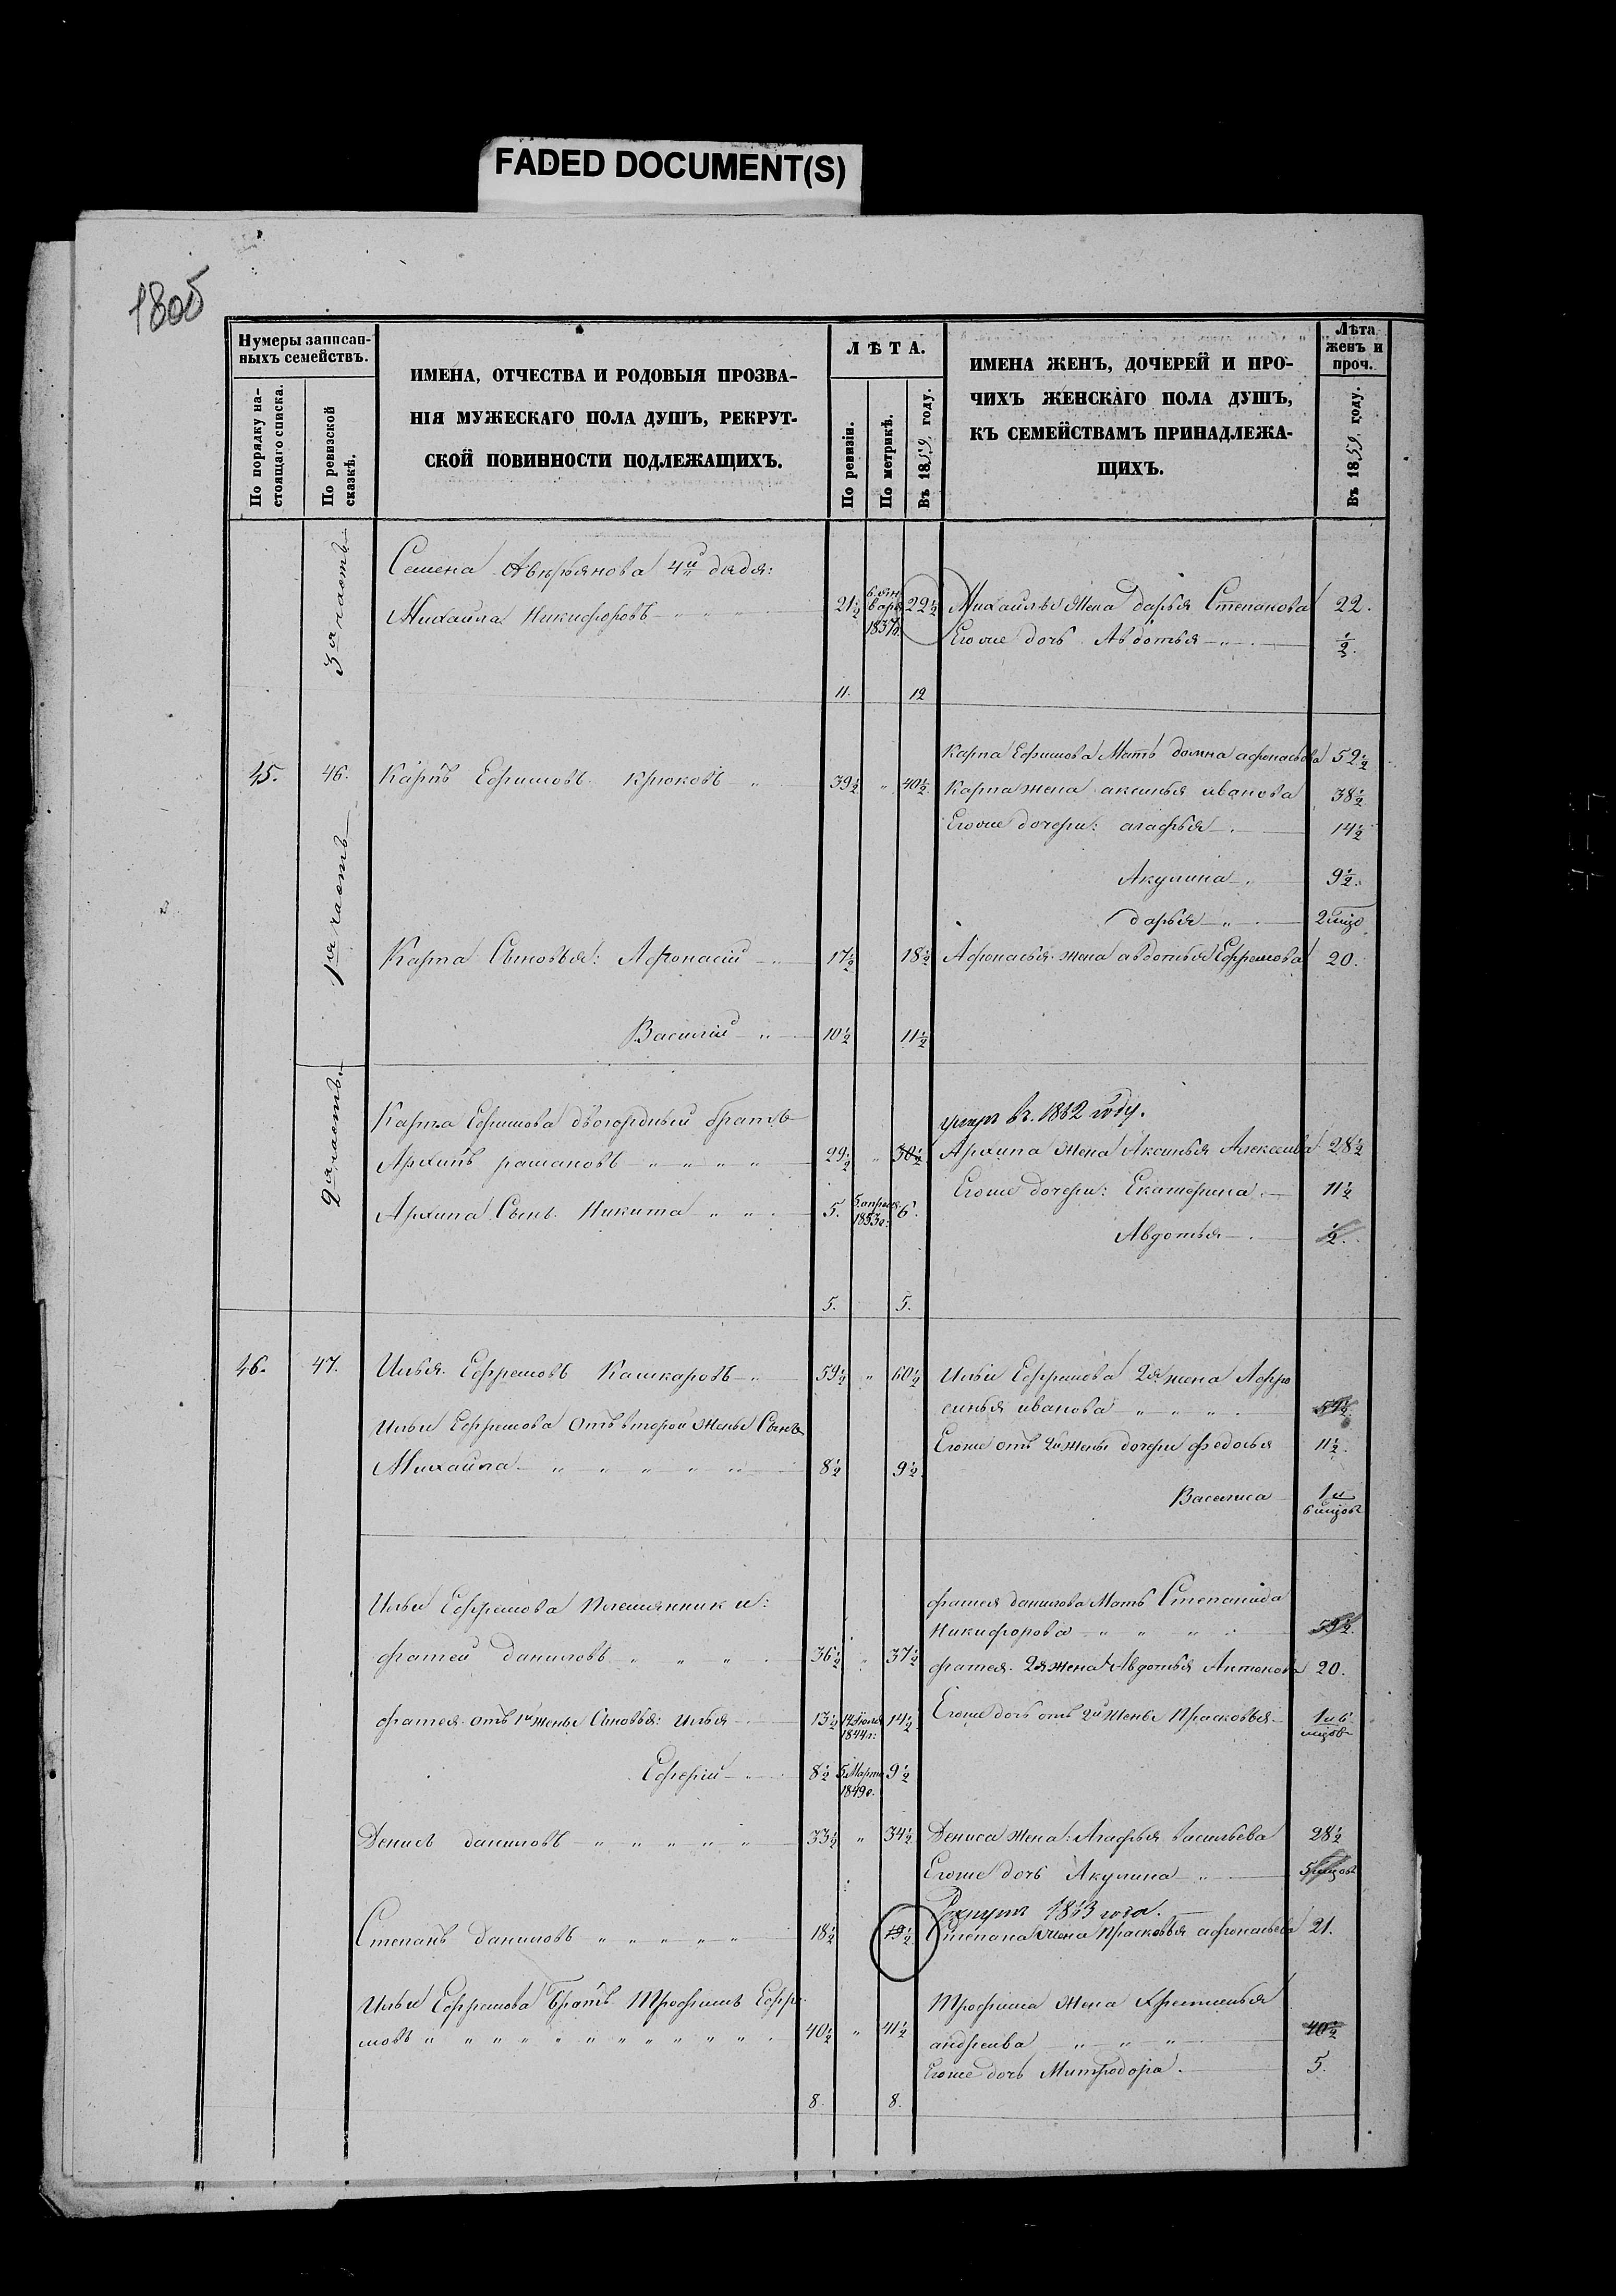 FADED DOCUMENT(S)
1805
Нумеры записан-
ныхъ семействъ.
По порядку на-
стоящаго списка.
По ревизской
сказкѣ.
ИМЕНА, ОТЧЕСТВА И РОДОВЫЯ ПРОЗВА-
НІЯ МУЖЕСКАГО ПОЛА ДУШЪ, РЕКРУТ-
СКОЙ ПОВИННОСТИ ПОДЛЕЖАЩИХЪ.
ЛѢТА.
По ревизіи.
По метрикѣ.
Въ 1859 году.
ИМЕНА ЖЕНЪ, ДОЧЕРЕЙ И ПРО-
ЧИХЪ ЖЕНСКАГО ПОЛА ДУШЪ,
КЪ СЕМЕЙСТВАМЪ ПРИНАДЛЕЖА-
ЩИХЪ.
Лѣта
женъ и
проч.
Въ 1859 году.
3я часть
Семена Аверьянова 4й дядя:
Михайла Никифоровъ 21½ 6 янв
варя
1837г. 22½ Михайлы жена дарья Степанова 22.
Егоже дочь Авдотья ½.
11. 12
Карпа Ефимова Мать домна афонасьева 52½
45. 46. Карпъ Ефимовъ Крюковъ 39½ " 40½ Карпа жена аксинья иванова 38½
Егоже дочери: агафья 14½
Акулина 9½.
дарья 2 мцо
1я часть
Карпа Сыновья: Афонасій 17½ 18½ Афонасья жена авдотья Ефремова 20.
Василій 10½ 11½
2я часть.
Карпа Ефимова двоюродный братъ
умеръ въ 1862 году.
Архипъ романовъ 29½ " 30½ Архипа жена Аксинья Алексеева 28½
Архипа Сынъ Никита 5. 5 апреля
1853г: 6. Егоже дочери: Екатерина 11½
Авдотья ½.
5. 5.
46. 47. Илья Ефремовъ Кашкаровъ 59½ " 60½ Ильи Ефремова 2я жена Афро
синья иванова 54½
Ильи Ефремова Отъ второй жены Сынъ
Михайла 8½ 9½ Егоже отъ 2й жены дочери федосья 11½.
Василиса 1 и
6 мцовъ
Ильи Ефремова племянники:
фатея данилова Мать Степанида
Никифорова 59½.
фатей даниловъ 36½ " 37½ фатея 2я жена Авдотья Антонова 20.
фатея отъ 1й жены Сыновья: Илья 13½ 14 Июля
1844г: 14½ Егоже дочь отъ 2й жены Прасковья 1 и 6
мцовъ
Ефрѣй 8½ 5 Марта
1849г. 9½
Денисъ даниловъ 33½ " 34½ Дениса жена: Агафья васильева 28½
Егоже дочь Акулина 5 мцовъ
Рекрутъ 1863 года.
Степанъ даниловъ 18½ 19½ Степана жена Прасковья афонасьева 21.
Ильи Ефремова братъ Трофимъ Ефре
мовъ 40½ " 41½ Трофима жена Хретинья
андреева 40½
Егоже дочь Митродора. 5.
8. 8.